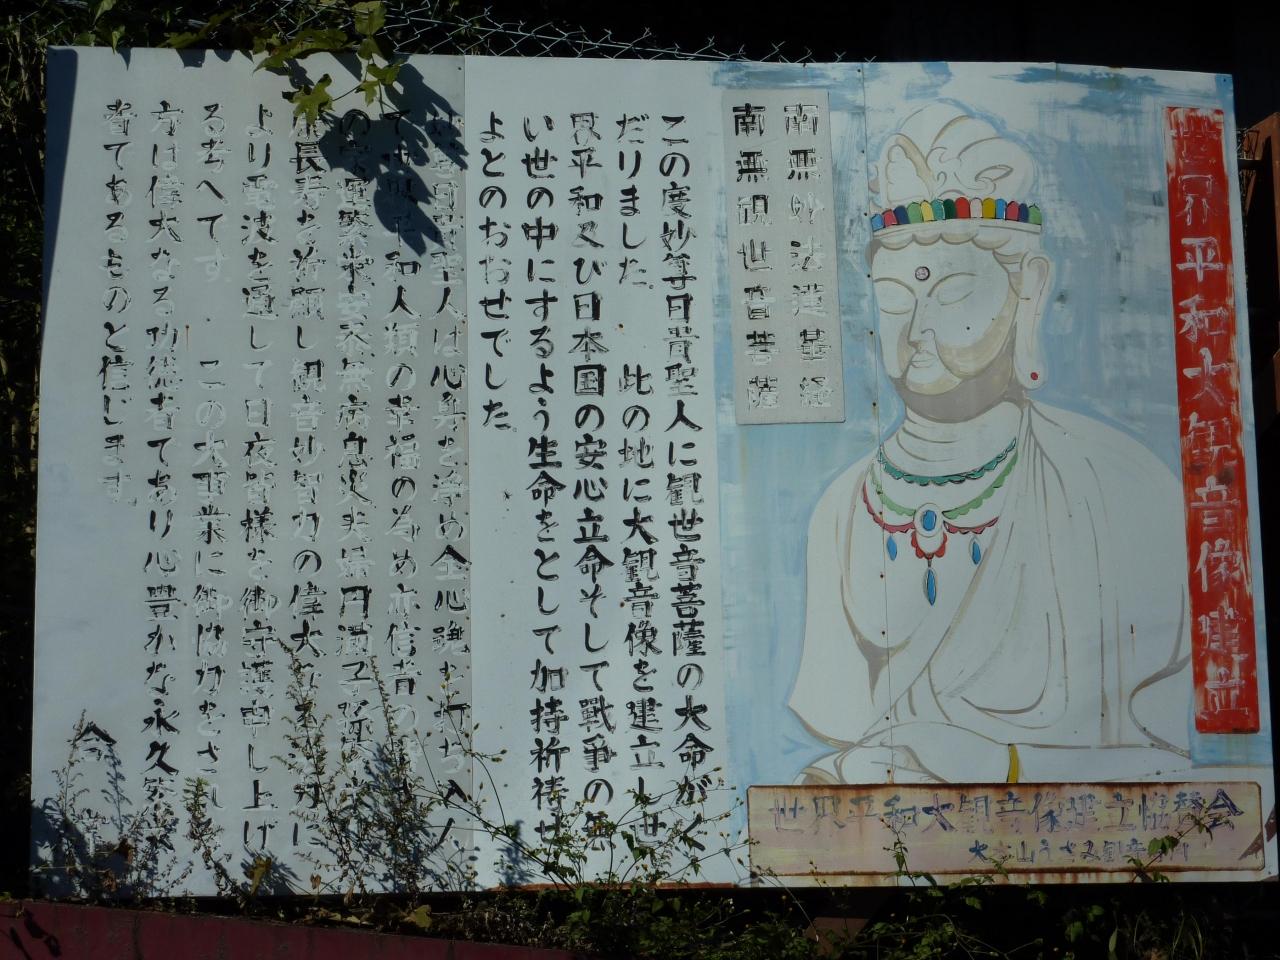 世界平和大観音像建立
南無妙法蓮華経
南無観世音菩薩
この度妙每日晋聖人に観世音菩薩の大命がく
だりました。 此の地に大観音像を建立し世
界平和及び日本国の安心立命そして戰争の無
い世の中にするよう生命をとして加持祈祷せ
よとのおおせでした。
聖人は心身を浄め全心魂を打ち入
て 和人類の幸福の為め亦信者の
の 運 安泰無病息災夫婦円満子孫
長寿を祈願し観音妙智力の偉大なる 力に
より電波を通して日夜皆様を御守護申し上げ
る考へてす。 この大事業に御協力をされ
方は偉大なる功徳者てあり心豊かな永久繁栄
者てあるものと信じます。
合
世界平和大観音像建立協賛会